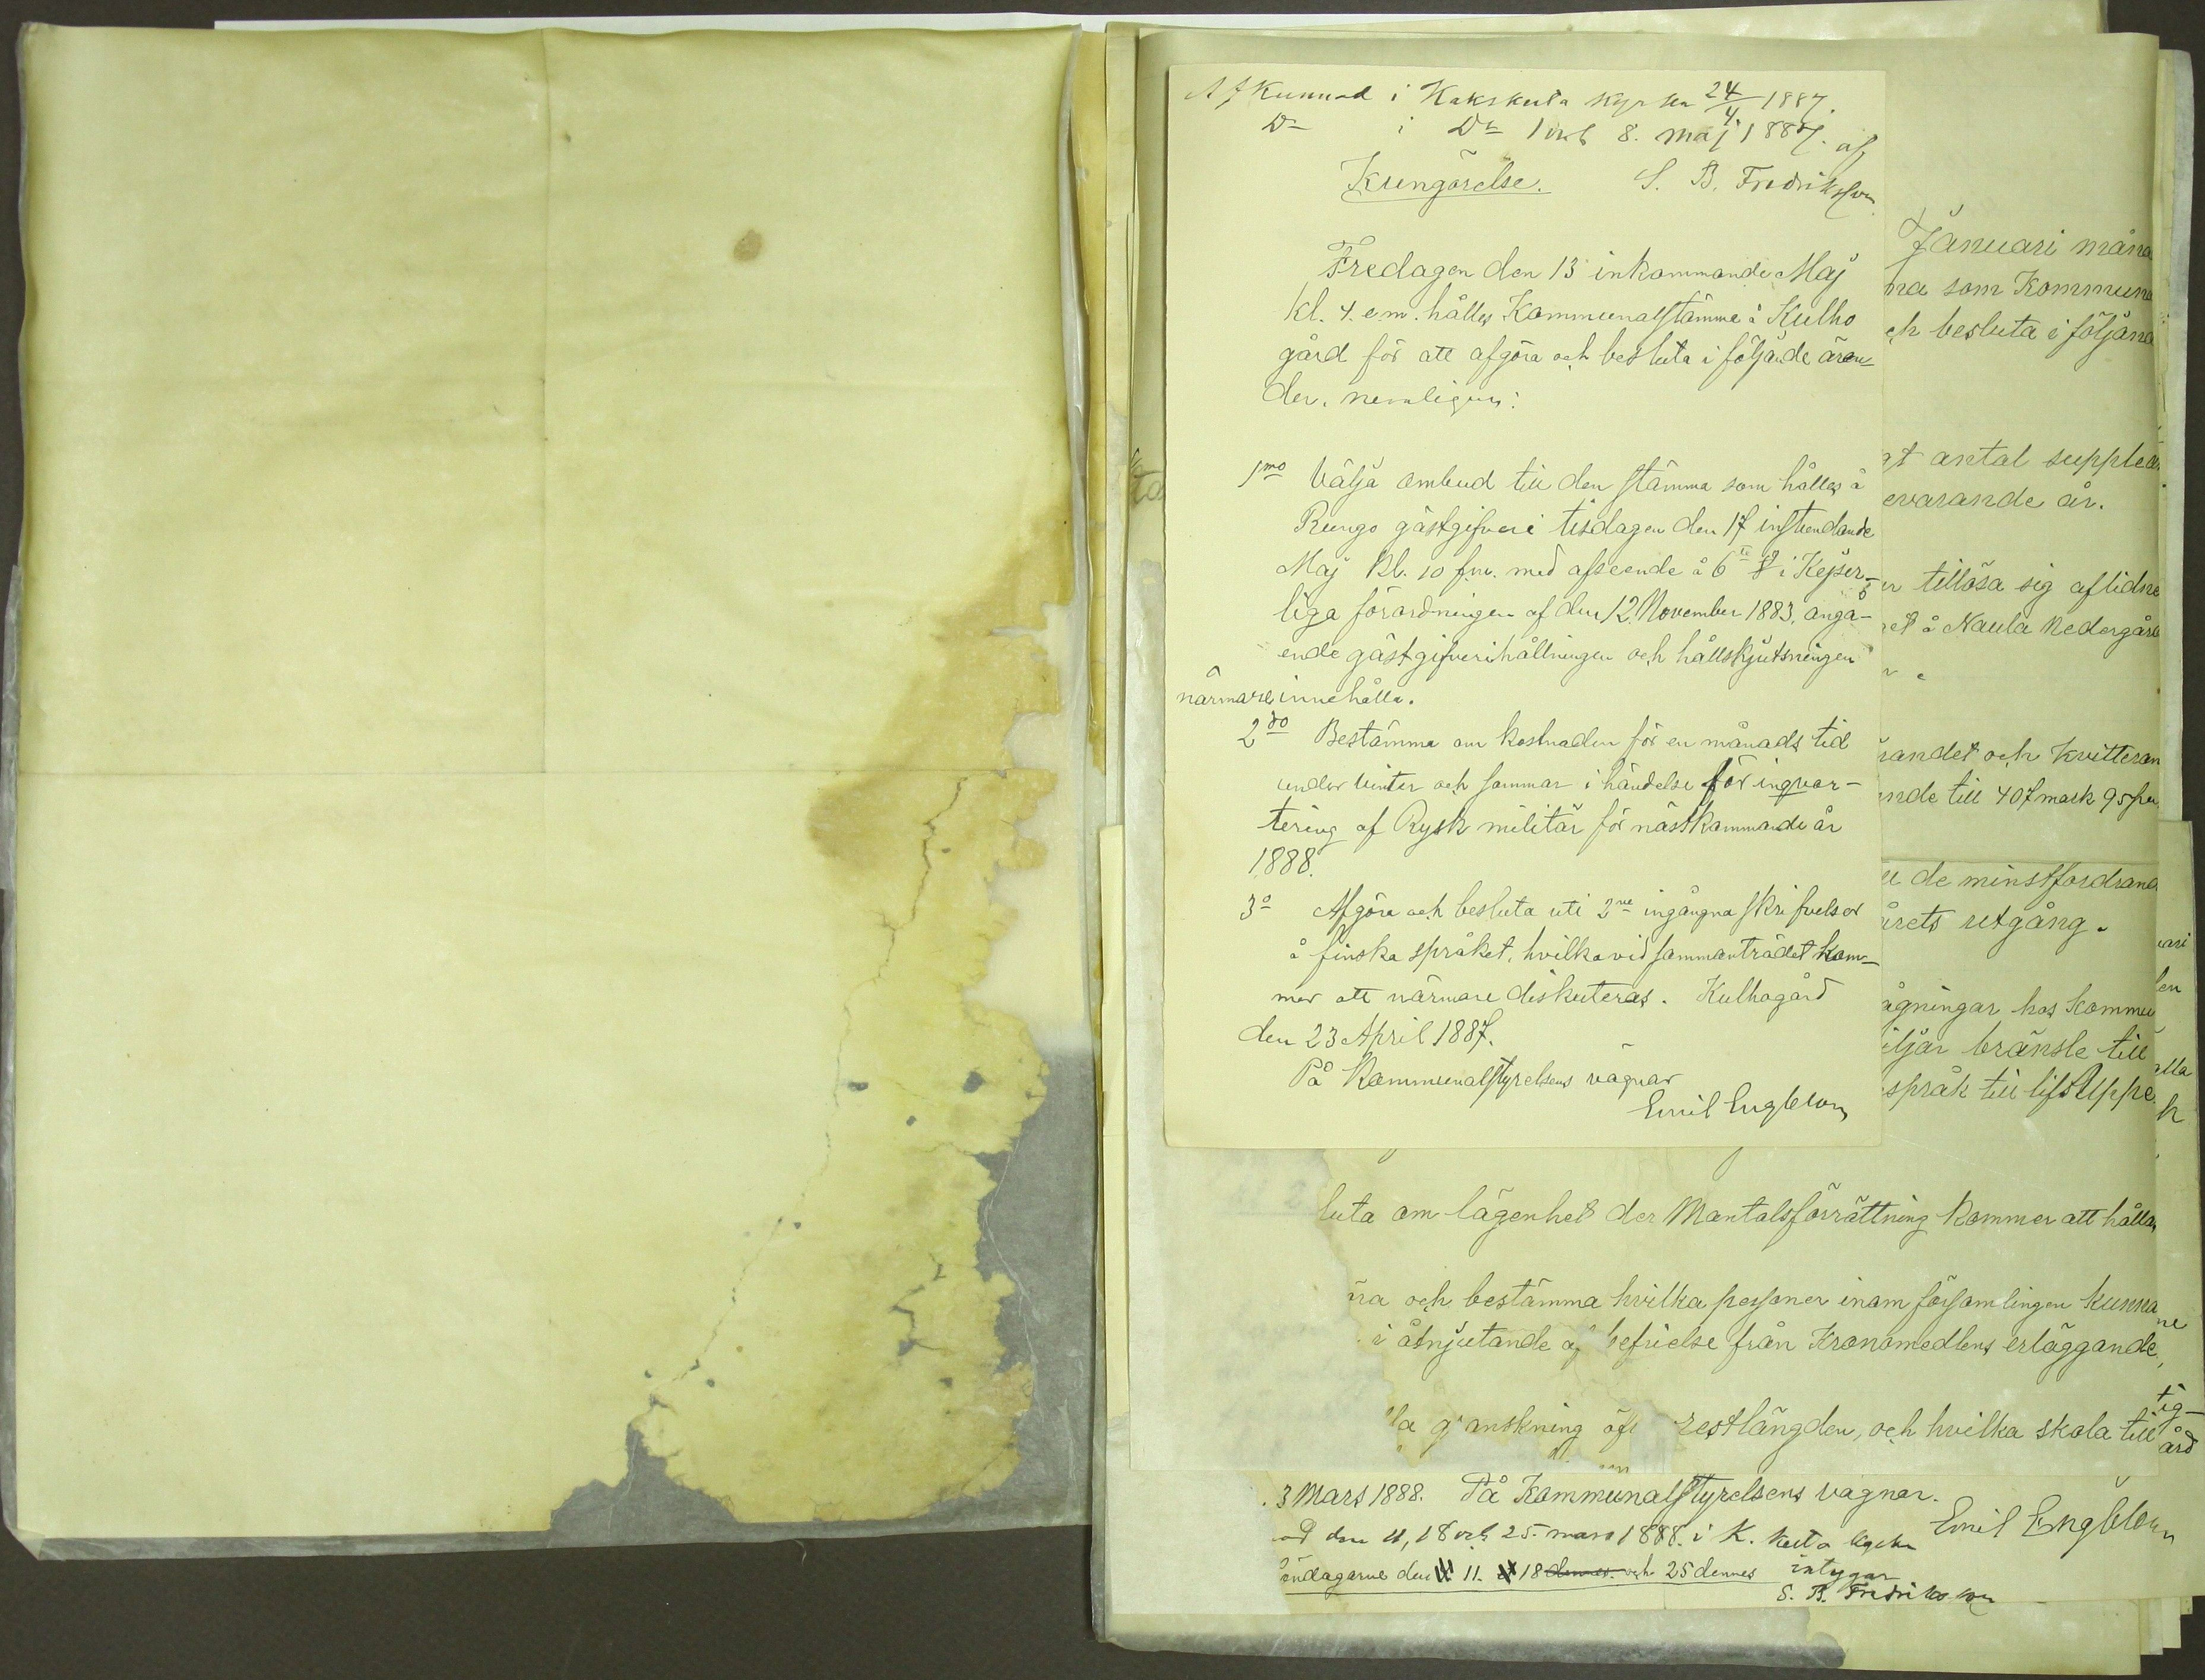 Afkunnad i Kakskerta kyrka 24/4 1887.
Do i Do 1 och 8. maj 1887. af
Kungörelse. S. B. Fredriksson
Fredagen den 13 inkommande Maj
kl. 4. e.m. hålles Kommunalstämma å Kulho
gård för att afgöra och besluta i följande ären-
der. nemligen:
1mo Välja ombud till den stämma som hålles å
Rungo gästgifveri tisdagen den 17 instundande
Maj kl. 10 f.m. med afseende å 6te § i Kejser-
liga förordningen af den 12 November 1883, angå-
ende gästgifverihållningen och hållskjutsningen
närmare innehålla.
2do Bestämma om kostnaden för en månads tid
under vinter och sommar i händelse för inqvar-
tering af Rysk militär för nästkommande år
1888.
3o Afgöra och besluta uti 2ne ingångna skrifvelser
å finska språket, hvilka vid sammanträdet kom-
mer att närmare diskuteras. Kulhogård
den 23 April 1887.
På Kommunalstyrelsens vägnar
Emil Engblom
Januari måna
na som Kommuna
ch besluta i följand
gt antal supplea
evarande år.
er tillösa sig aflidne
et å Naula Nedergård
randet och kvitteran
ande till 407 mark 95 pn.
de minstfordrand
årets utgång.
ägningar hos Kommu
iljar bränsle till
språk till lifsuppe
luta om lägenhet der Mantalsförrättning kommer att hållas
na och bestämma hvilka personer inom församlingen kunna
i åtnjutande af befrielse från Kronomedlens erläggande
la granskning öfv restlängden, och hvilka skola till
3 Mars 1888. På Kommunalstyrelsens vägnar.
Emil Engblom
ad den 11, 18 och 25. mars 1888. i K. kerta kyrka
öndagarne den 11. 18 dennes och 25 dennes intygar
S. B. Fredriksson